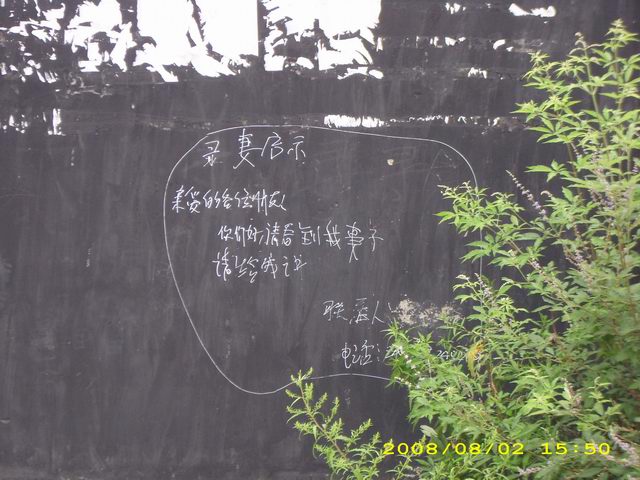 寻妻启示
亲爱的各位朋友
你们好,请看到我妻子
请给我
联系人
电话:
2008/08/02 15:50